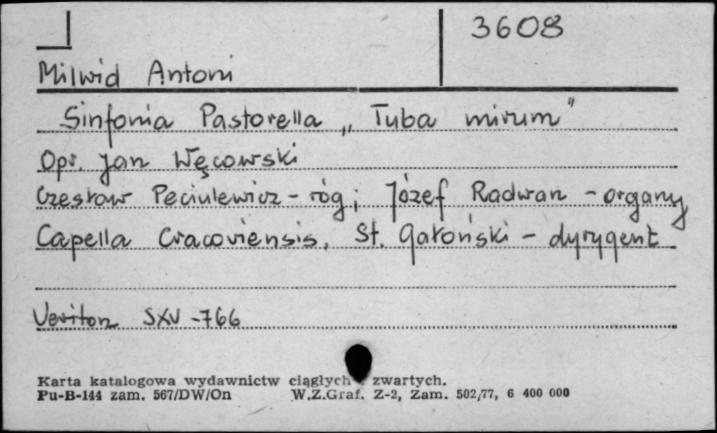 3608
Milwid Antoni
Sinfonia Pastorella „Tuba mirum"
Opr. Jan Węcowski
Czesław Peciulewicz - róg; Józef Radwan - organy
Capella Cracoviensis, St. Gałoński - dyrygent
Veriton SXV -766
Karta katalogowa wydawnictw ciągłych zwartych.
Pu-B-144 zam. 567/DW/On W.Z.Graf. Z-2, Zam. 502/77, 6 400 000